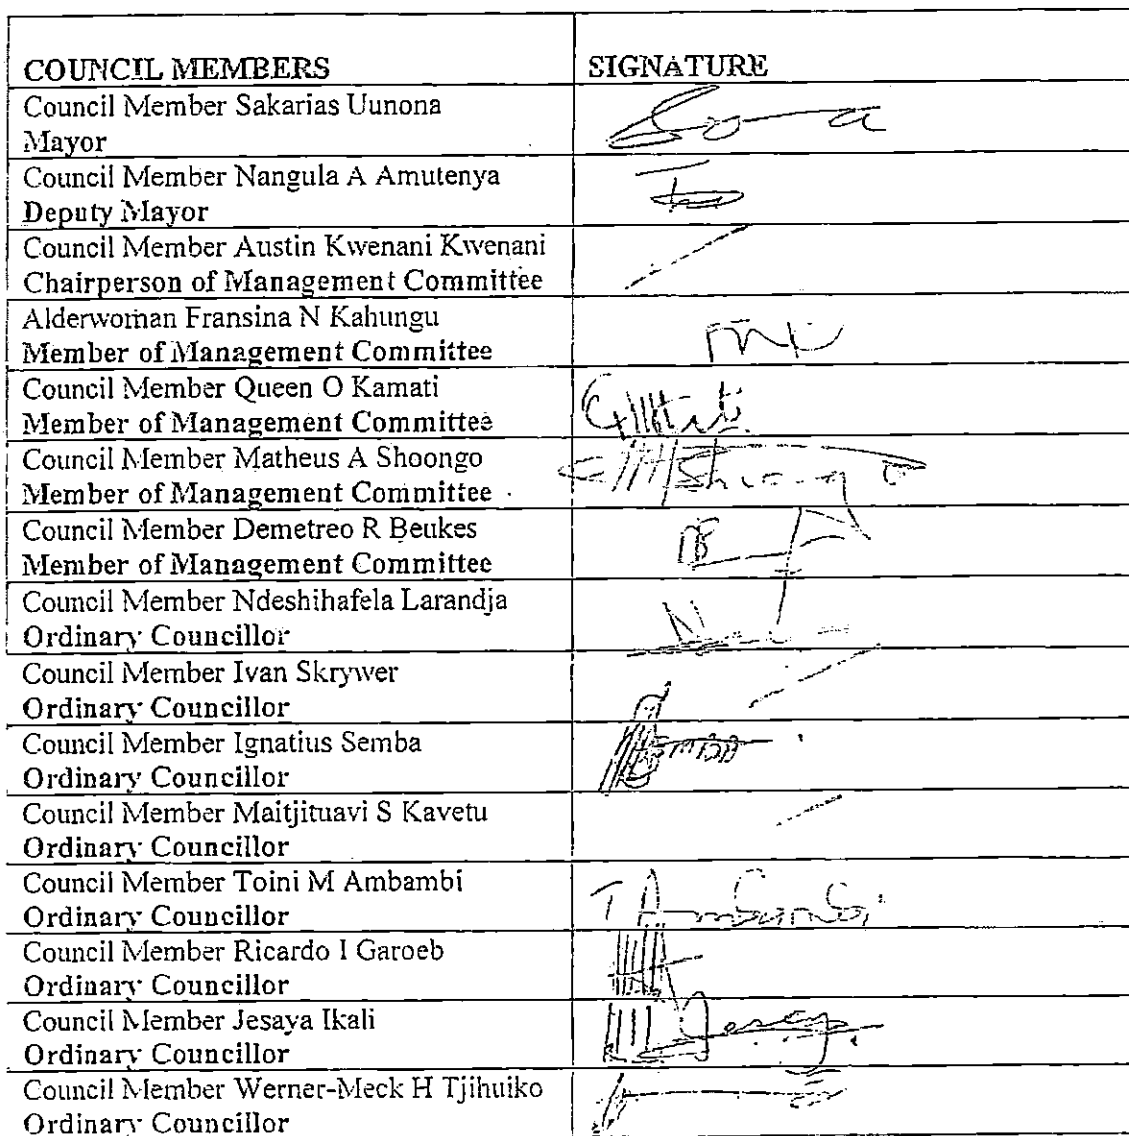 COUNCIL MEMBERS SIGNATURE
Council Member Sakarias Uunona
Mayor
Council Member Nangula A Amutenya
Deputy Mayor
Council Member Austin Kwenani Kwenani
Chairperson of Management Committee
Alderwoman Fransina N Kahungu
Member of Management Committee
Council Member Queen O Kamati
Member of Management Committee
Council Member Matheus A Shoongo
Member of Management Committee
Council Member Demetreo R Beukes
Member of Management Committee
Council Member Ndeshihafela Larandja
Ordinary Councillor
Council Member Ivan Skrywer
Ordinary Councillor
Council Member Ignatius Semba
Ordinary Councillor
Council Member Maitjituavi S Kavetu
Ordinary Councillor
Council Member Toini M Ambambi
Ordinary Councillor
Council Member Ricardo I Garoeb
Ordinary Councillor
Council Member Jesaya Ikali
Ordinary Councillor
Council Member Werner-Meck H Tjihuiko
Ordinary Councillor